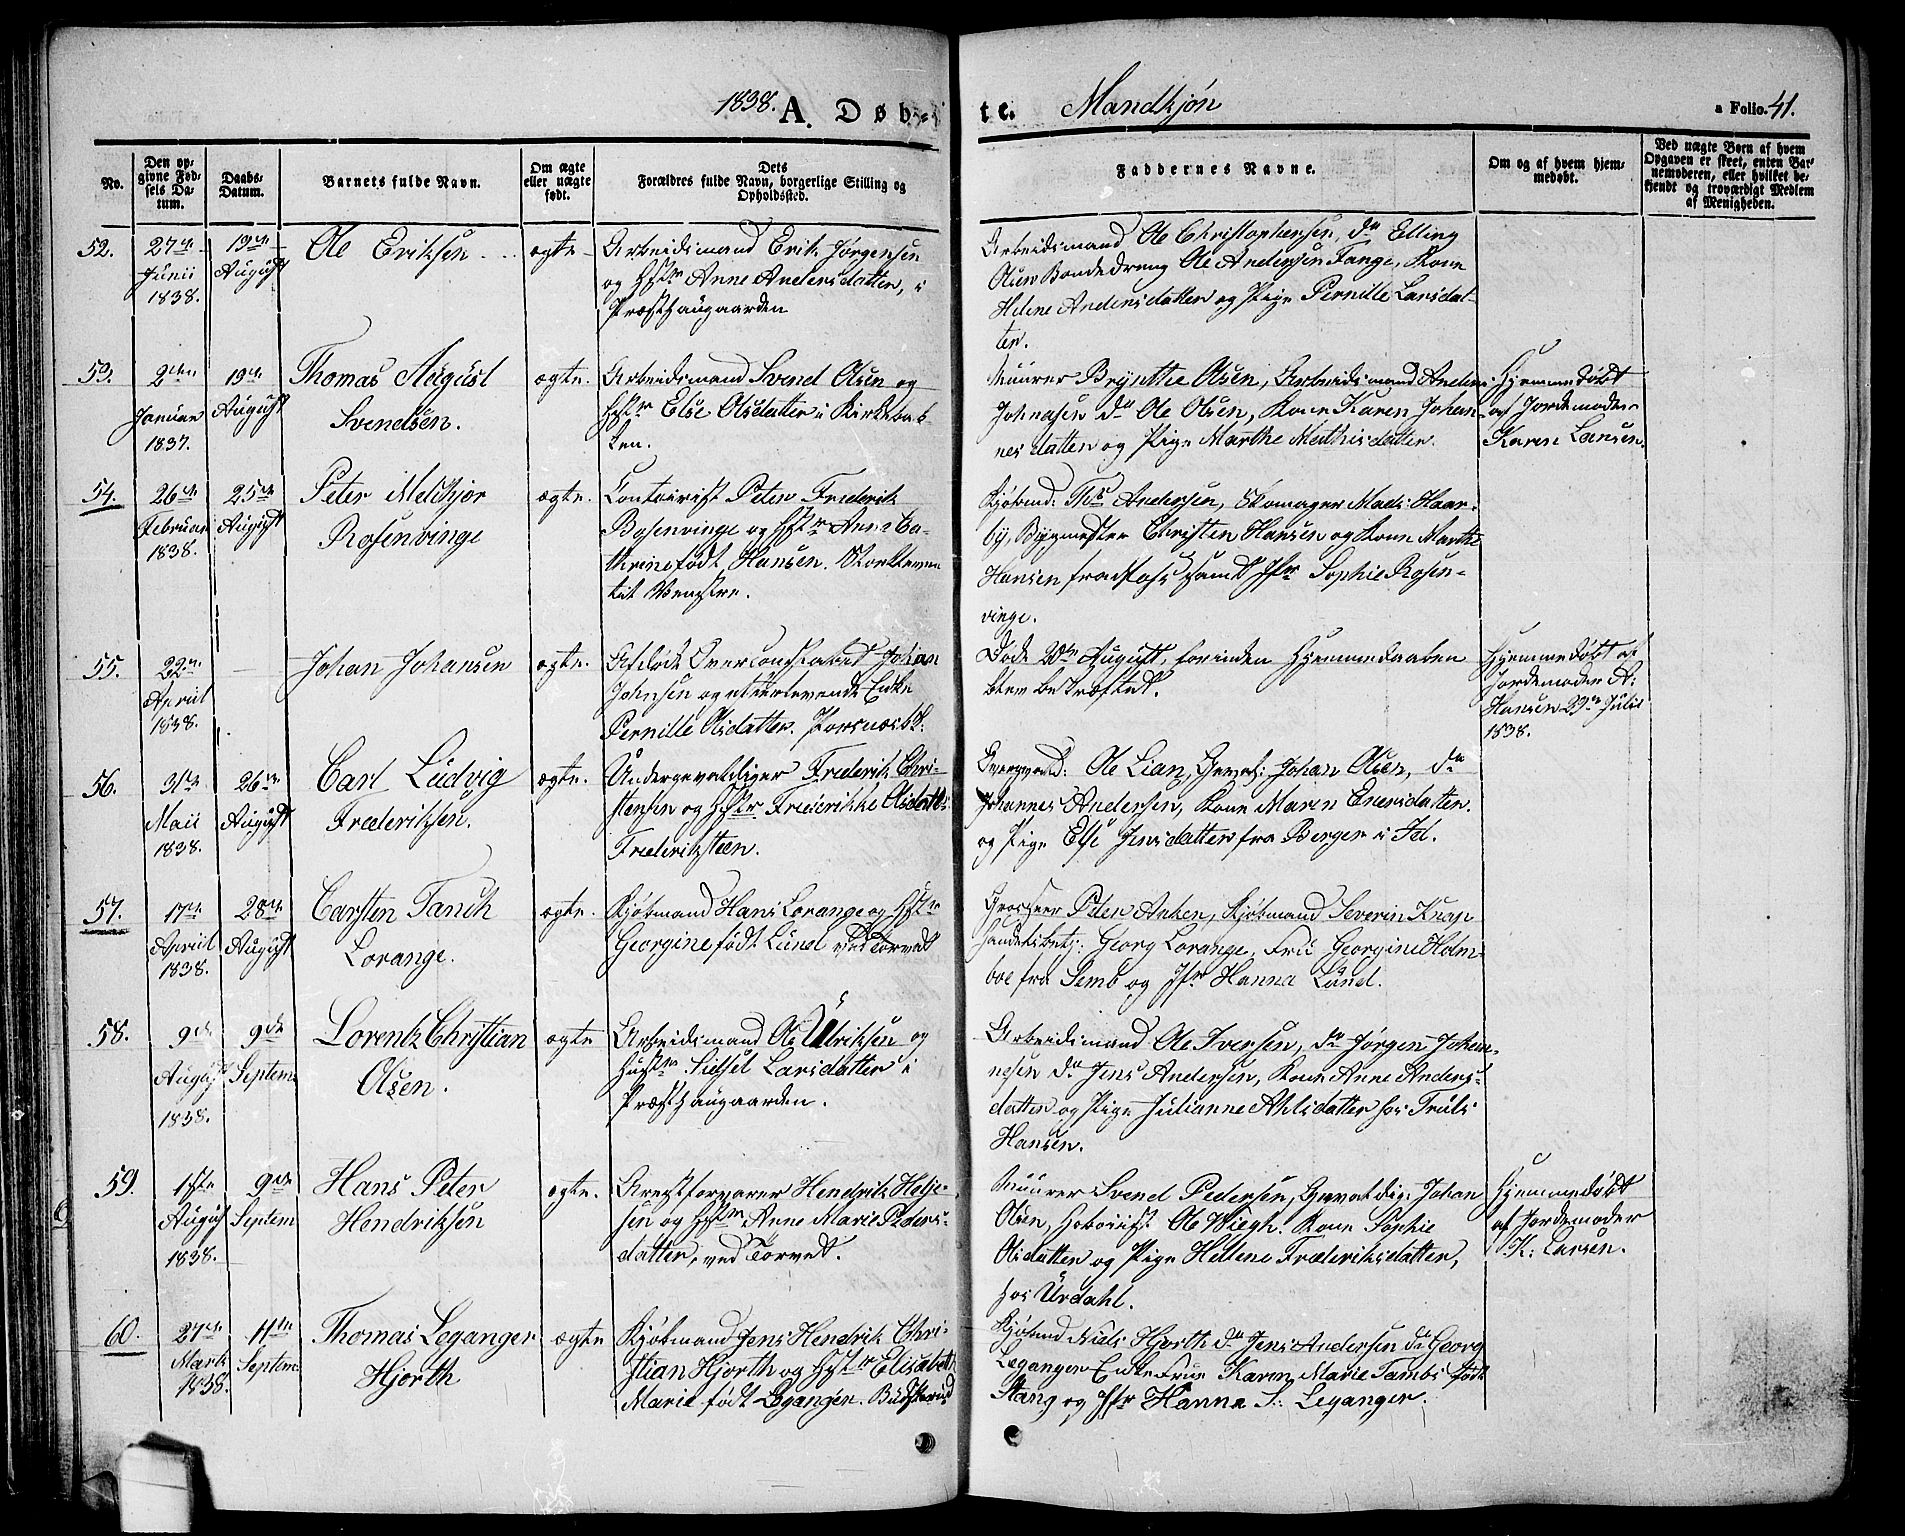 1838. A. Døb-
te. Mandkjøn a Folio. 41.
No.
Den op-
givne Fød-
sels Da-
tum.
Daabs-
Datum.
Barnets fulde Navn.
Om ægte
eller uægte
født.
Dets
Forældres fulde Navn, borgerlige Stilling og
Opholdssted.
Faddernes Navne.
Om og af hvem hjem-
medøbt.
Ved uægte Børn af hvem
Opgaven er skeet, enten Bar-
nemoderen, eller hvilket be-
kjendt og troværdigt Medlem
af Menigheden.
52.
27de
Junii
1838.
19de
August
Ole Eriksen
ægte
Arbeidsmand Erik Jørgensen
og Hstr Anne Andersdatter, i
Præsthaugaarden
Arbeidsmand Ole Christophersen, do Elling
Olsen Bondedreng Ole Andersen Tange, Kone
Helene Andersdatter og Pige Pernille Larsdat-
ter.
53.
2den
Januar
1837.
19de
August
Thomas August
Svendsen.
ægte.
Arbeidsmand Svend Olsen og
Hstr Else Olsdatter i Kirkebak-
ken.
Muurer Brynthe Olsen, Arbeidsmand Anders
Johnasen do Ole Olsen, Kone Karen Johan-
nesdatter og Pige Marthe Mathisdatter.
Hjemmedøbt
af Jordemoder
Karen Larsen.
54.
26de
Februar
1838.
25de
August
Peter Melchjor
Rosenvinge
ægte.
Contoirist Peter Frederik
Rosenvinge og Hstr Anne Ca-
thrine født Hansen.
til Venstre.
Kjøbmd: Ths Andersen, Skomager Mads Haar-
by, Bygmester Christen Hansen og Kone Marthe
Hansen samt Jfr Sophie Rosen-
vinge.
55.
22de
April
1838.
Johan Johansen
ægte.
Afdøde Overconstabel Johan
Johnsen og efterlevende Enke
Pernille Olsdatter.
Døde August, forinden Hjemmedaaben
blev bekræftet.
Hjemmedøbt af
Jordemoder A:
Hansen 29de Julii
1838.
56.
31te
Maii
1838.
26de
August
Carl Ludvig
Frederiksen.
ægte.
Undergevaldiger Frederik Chri-
stensen og Hstr Frederikke Olsdatter
Frederiksteen.
Ole Lian, Geval: Johan Olsen, do
Johannes Andersen, Kone Maren Enersdatter.
og Pige Else Jensdatter fra Berger i Id.
57.
17de
April
1838.
28de
August
Carsten Tank
Lorange.
ægte.
Kjøbmand Hans Lorange og Hstr
Georgine født Lund ved Torvet
Grosserer Peter Anker, Kjøbmand Severin Knap
Handelsbetj: Georg Lorange, Frü Georgine Holm-
boe fra Semb og Jfr Hanna Lund.
58.
9de
August
1838.
9de
Septem
Lorentz Christian
Olsen.
ægte
Arbeidsmand Ole Ulriksen og
Hustr Sidsel Larsdatter i
Præsthaugaarden.
Arbeidsmand Ole Iversen, do Jørgen Johan-
nesen do Jens Andersen, Kone Anne Anders-
datter og Pige Julianne Ahlsdatter hos Truls
Hansen.
59.
1ste
August
1838.
9de
Septem
Hans Peter
Hendriksen
ægte.
Arrestforvarer Hendrik Helje-
sen og Hstr Anne Marie Peders-
datter, ved Torvet.
Muurer Svend Pedersen, Gevaldig: Johan
Olsen, Hoboist Ole Wiegh. Kone Sophie
Olsdatter og Pige Hellene Frederiksdatter,
hos Urdahl.
Hjemmedøbt
af Jordemoder
K: Larsen.
60.
27de
Marts
1838.
11te
Septem
Thomas Leganger
Hjorth
ægte
Kjøbmand Jens Hendrik Chri-
stian Hjorth og Hstr Elisabeth
Marie født Leganger.
Kjøbmd Niels Hjorth do Jens Andersen do Georg
Leganger Enkefrue Karen Marie Tambs født
Stang og Jfr Hanna S: Leganger.